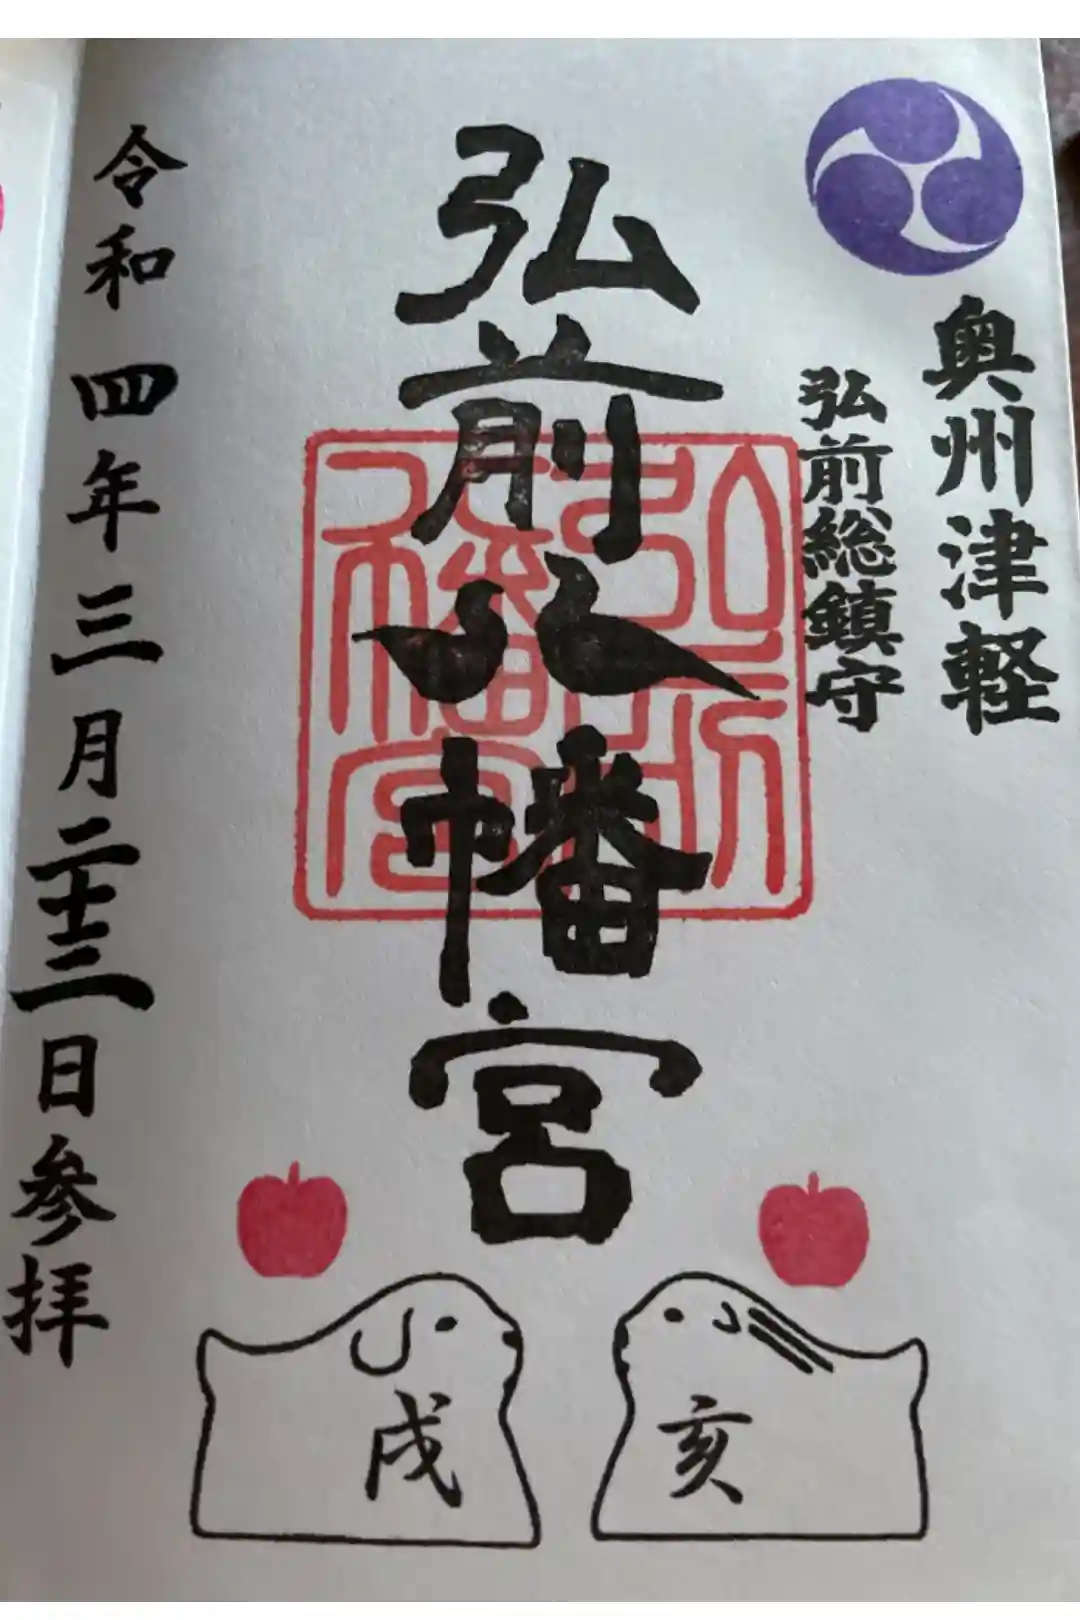 奥州津軽
弘前総鎮守
弘前八幡宮
弘前八幡宮
令和四年三月二十三日参拝
戌
亥